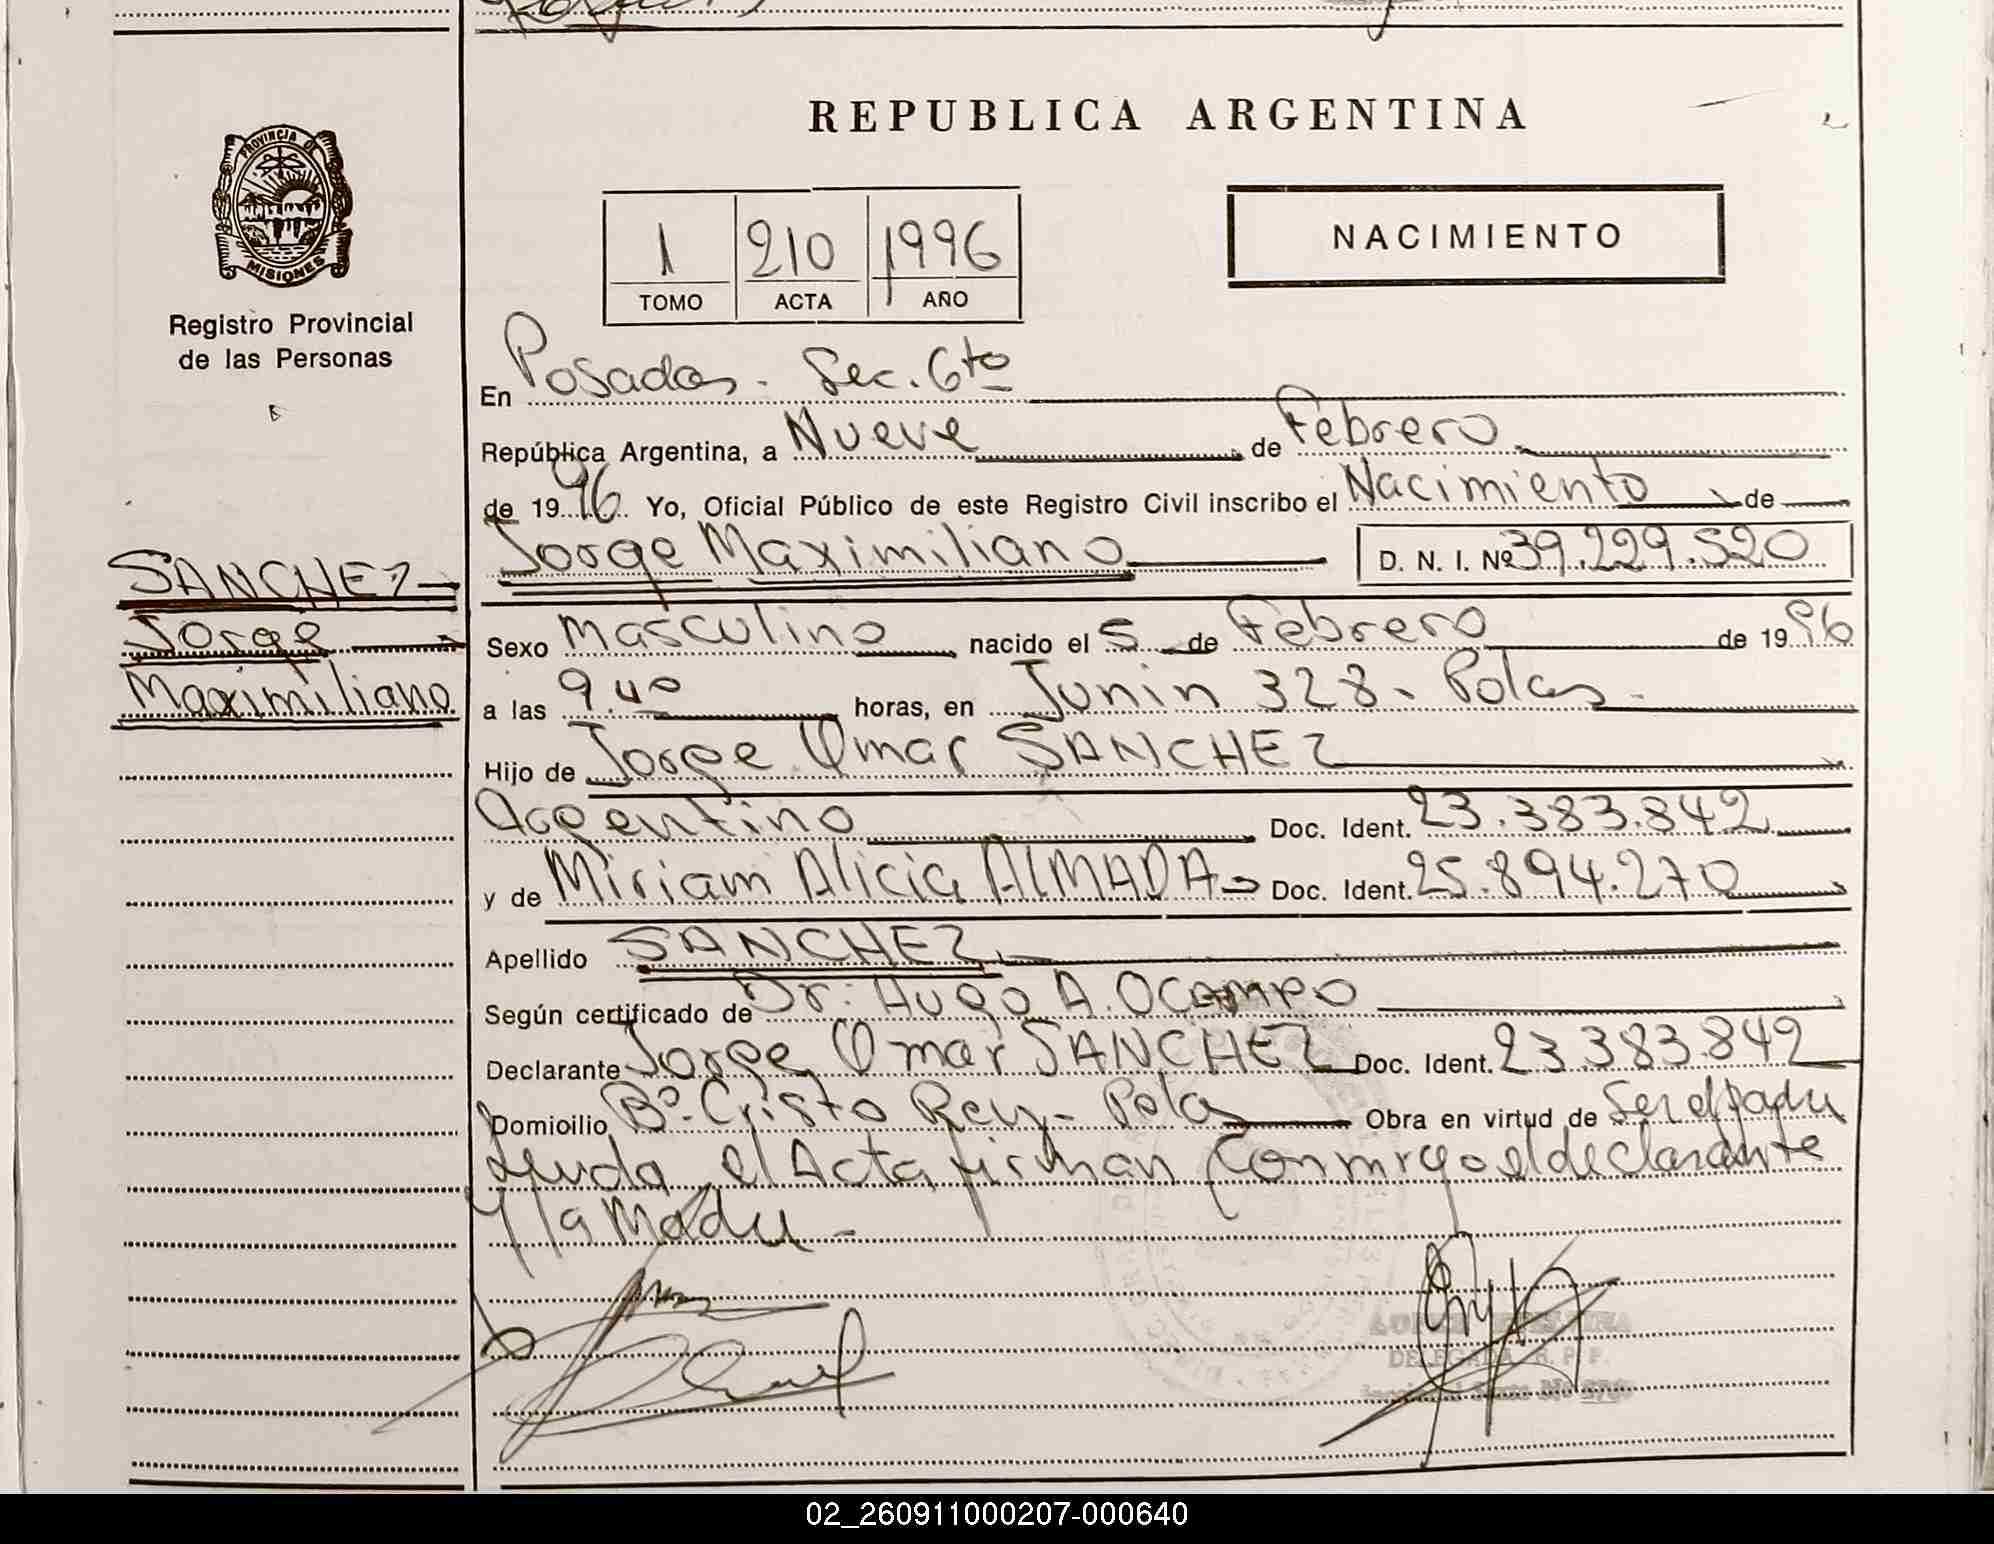 REPUBLICA ARGENTINA
PROVINCIA DE
MISIONES
Registro Provincial
de las Personas
1 210 1996
TOMO ACTA AÑO
NACIMIENTO
En Posadas - Sec. 6to
República Argentina, a Nueve de Febrero
de 1996 Yo, Oficial Público de este Registro Civil inscribo el Nacimiento de
Jorge Maximiliano D. N. I. Nº 39.229.520
SANCHEZ
Jorge
Maximiliano
Sexo Masculino nacido el 5 de Febrero de 1996
a las 9.40 horas, en Junin 328 - Pdas -
Hijo de Jorge Omar SANCHEZ
Argentino Doc. Ident. 23.383.842
y de Miriam Alicia ALMADA Doc. Ident. 25.894.270
Apellido SANCHEZ
Según certificado de Dr. Hugo A. OCAMPO
Declarante Jorge Omar SANCHEZ Doc. Ident. 23.383.842
Domicilio Bº Cristo Rey - Pdas Obra en virtud de Ser el padre
Leida el Acta firman Conmigo el declarante
y la Madre -
DELEGADA R. P. P.
02_260911000207-000640